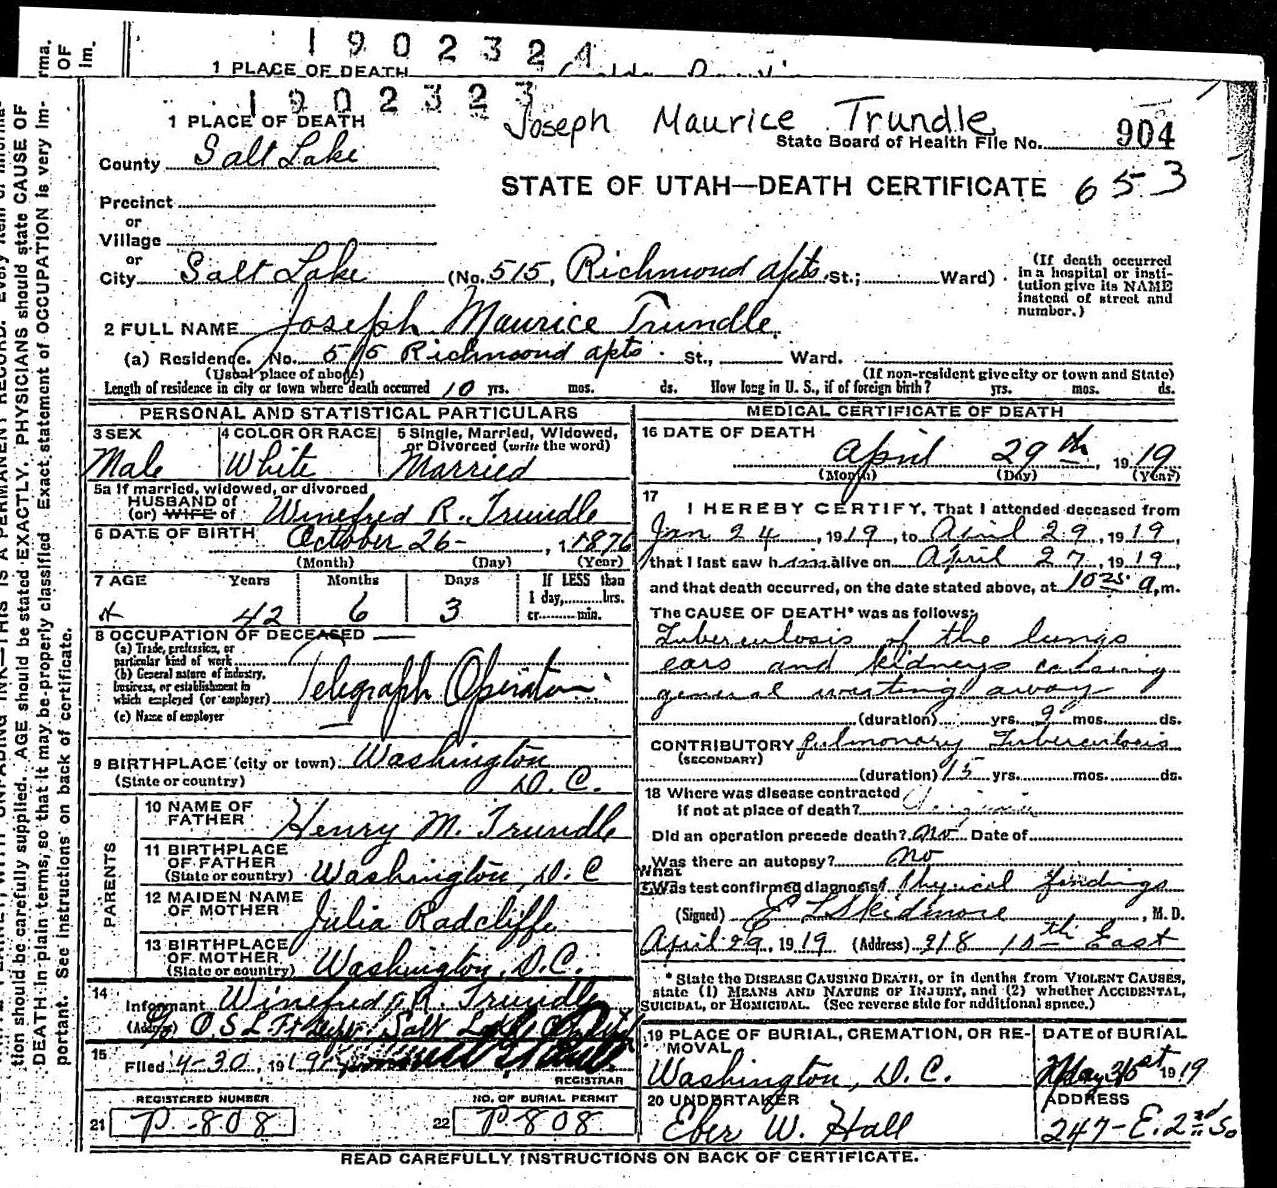 rma.
OF
Im.
1902324
1 PLACE OF DEATH
1902323
1 PLACE OF DEATH
Joseph Maurice Trundle
State Board of Health File No. 904
County Salt Lake
STATE OF UTAH—DEATH CERTIFICATE 653
Precinct
or
Village
or
City Salt Lake (No. 515, Richmond Apts St.; Ward)
(If death occurred in a hospital or insti-
tution give its NAME
instead of street and
number.)
2 FULL NAME Joseph Maurice Trundle
(a) Residence. No. 515 Richmond Apts. St., Ward.
(Usual place of abode) (If non-resident give city or town and State)
Length of residence in city or town where death occurred 10 yrs. mos. ds. How long in U. S., if of foreign birth? yrs. mos. ds.
PERSONAL AND STATISTICAL PARTICULARS
3 SEX Male
4 COLOR OR RACE White
5 Single, Married, Widowed, or Divorced (write the word) Married
5a If married, widowed, or divorced
HUSBAND of
(or) WIFE of Winefred R. Trundle
6 DATE OF BIRTH October 26 - , 1 1876
(Month) (Day) (Year)
7 AGE Years Months Days If LESS than
1 day, hrs.
or min.
42 6 3
8 OCCUPATION OF DECEASED
(a) Trade, profession, or
particular kind of work
(b) General nature of industry,
business, or establishment in
which employed (or employer) Telegraph Operator
(c) Name of employer
9 BIRTHPLACE (city or town) Washington
(State or country) D.C.
PARENTS
10 NAME OF FATHER Henry M. Trundle
11 BIRTHPLACE OF FATHER
(State or country) Washington, D.C
12 MAIDEN NAME OF MOTHER Julia Radcliffe
13 BIRTHPLACE OF MOTHER
(State or country) Washington, D.C.
14 Informant Winefred R. Trundle
(Address) Salt Lake
15 Filed 4-30, 1919
REGISTRAR
REGISTERED NUMBER
21 P-808
NO. OF BURIAL PERMIT
22 P-808
MEDICAL CERTIFICATE OF DEATH
16 DATE OF DEATH
April 29th, 1919
(Month) (Day) (Year)
17 I HEREBY CERTIFY, That I attended deceased from
Jan 24, 1919, to April 29, 1919,
that I last saw him alive on April 27, 1919,
and that death occurred, on the date stated above, at 10 25 a.m.
The CAUSE OF DEATH* was as follows:
Tuberculosis of the lungs
ears and kidneys causing
general wasting away
(duration) yrs. 9 mos. ds.
CONTRIBUTORY Pulmonary Tuberculosis
(SECONDARY)
(duration) 15 yrs. mos. ds.
18 Where was disease contracted
if not at place of death?
Did an operation precede death? No Date of
Was there an autopsy? No
What test confirmed diagnosis? Physical findings
(Signed) E L Skidmore, M. D.
April 29, 1919 (Address) 318 10th East
* State the DISEASE CAUSING DEATH, or in deaths from VIOLENT CAUSES,
state (1) MEANS AND NATURE OF INJURY, and (2) whether ACCIDENTAL,
SUICIDAL, or HOMICIDAL. (See reverse side for additional space.)
19 PLACE OF BURIAL, CREMATION, OR RE-
MOVAL Washington, D.C.
DATE OF BURIAL
May 1919
20 UNDERTAKER
Eber W. Hall
ADDRESS
247-E. 2nd So
READ CAREFULLY INSTRUCTIONS ON BACK OF CERTIFICATE.
tion should be carefully supplied. AGE should be stated EXACTLY. PHYSICIANS should state CAUSE OF
DEATH in plain terms, so that it may be properly classified. Exact statement of OCCUPATION is very im-
portant. See instructions on back of certificate.